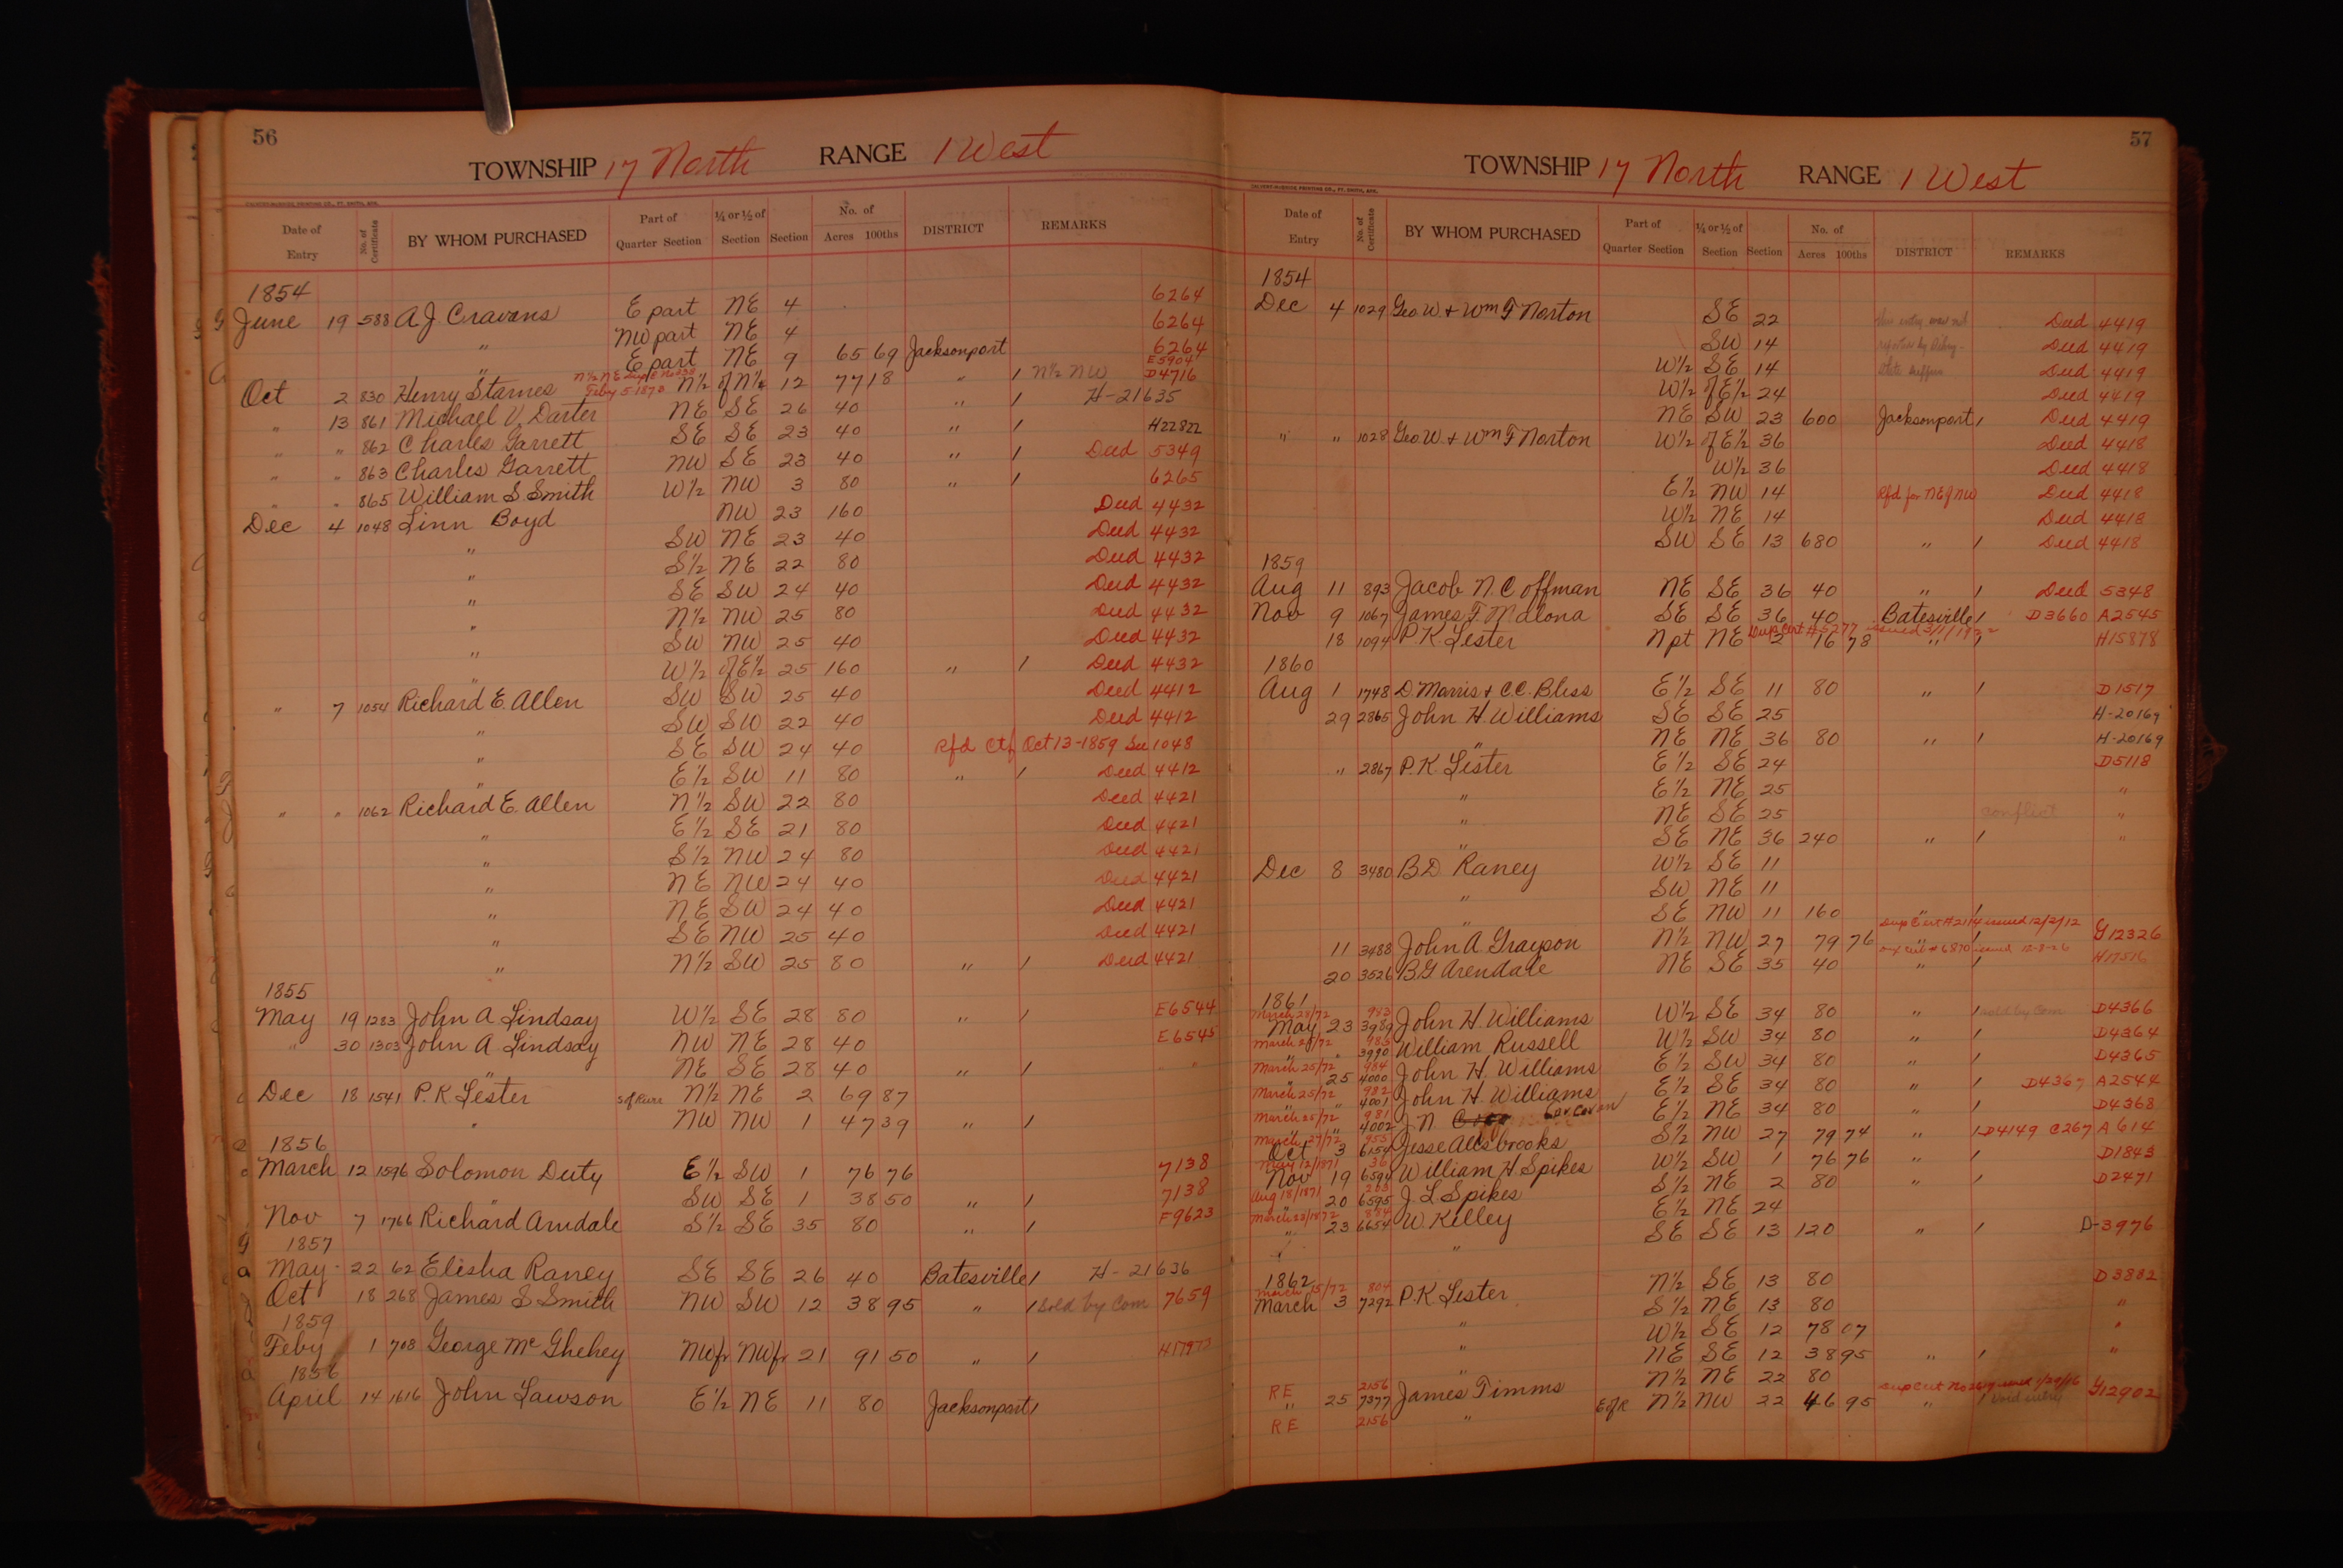 56
TOWNSHIP 17 North RANGE 1 West
Date of Entry No. of Certificate BY WHOM PURCHASED Part of Quarter Section ¼ or ½ of Section Section No. of Acres 100ths DISTRICT REMARKS
1854 6264
June 19 588 A J. Cravens E part NE 4 6264
" NW part NE 4 6264
" E part NE 9 65 69 Jacksonport E5904
Oct 2 830 Henry Starnes N½ of N½ 12 77 18 " / N½ NW D4716
" 13 861 Michael V. Darter NE SE 26 40 " / H-21635
" " 862 Charles Garrett SE SE 23 40 " / H22822
" " 863 Charles Garrett NW SE 23 40 " / Deed 5349
" " 865 William S Smith W½ NW 3 80 " / 6265
Dec 4 1048 Linn Boyd NW 23 160 Deed 4432
" SW NE 23 40 Deed 4432
" S½ NE 22 80 Deed 4432
" SE SW 24 40 Deed 4432
" N½ NW 25 80 Deed 4432
" SW NW 25 40 Deed 4432
" W½ of E½ 25 160 " / Deed 4432
" 7 1054 Richard E. Allen SW SW 25 40 Deed 4412
" SW SW 22 40 Deed 4412
" SE SW 24 40 Rfd Ctf Oct 13-1859 See 1048
" E½ SW 11 80 " / Deed 4412
" " 1062 Richard E. Allen N½ SW 22 80 Deed 4421
" E½ SE 21 80 Deed 4421
" S½ NW 24 80 Deed 4421
" NE NW 24 40 Deed 4421
" NE SW 24 40 Deed 4421
" SE NW 25 40 Deed 4421
" N½ SW 25 80 " / Deed 4421
1855
May 19 1283 John A Lindsay W½ SE 28 80 " / E6544
" 30 1303 John A Lindsay NW NE 28 40 E6545
" NE SE 28 40 " / "
Dec 18 1541 P. K Lester N½ NE 2 69 87
" NW NW 1 47 39 " /
1856
March 12 1596 Solomon Duty E½ SW 1 76 76 7138
" SW SE 1 38 50 " / 7138
Nov 7 1766 Richard Arndale S½ SE 35 80 " / F9623
1857
May 22 62 Elisha Raney SE SE 26 40 Batesville / H-21636
Oct 18 268 James S Smith NW SW 12 38 95 " / Sold by Com 7659
1859
Feby 1 708 George McGhehey NWfr NWfr 21 91 50 " /
1856
April 14 1616 John Lawson E½ NE 11 80 Jacksonport /
57
TOWNSHIP 17 North RANGE 1 West
Date of Entry No. of Certificate BY WHOM PURCHASED Part of Quarter Section ¼ or ½ of Section Section No. of Acres 100ths DISTRICT REMARKS
1854
Dec 4 1029 Geo. W & Wm F Norton SE 22 Deed 4419
SW 14 Deed 4419
W½ SE 14 Deed 4419
W½ of E½ 24 Deed 4419
NE SW 23 600 Jacksonport / Deed 4419
" " 1028 Geo. W & Wm F Norton W½ of E½ 36 Deed 4418
W½ 36 Deed 4418
E½ NW 14 Rfd for NE of NW Deed 4418
W½ NE 14 Deed 4418
SW SE 13 680 " / Deed 4418
1859
Aug 11 893 Jacob N. Coffman NE SE 36 40 " / Deed 5348
Nov 9 1067 James F. Malona SE SE 36 40 Batesville / D3660 A2545
18 1094 P K Lester N pt NE 2 76 78 " / H15878
1860
Aug 1 1748 D Morris & C.C. Bliss E½ SE 11 80 " / D1517
29 2865 John H. Williams SE SE 25 H-20169
" NE NE 36 80 " / H-20169
" 2867 P. K. Lester E½ SE 24 D5118
" E½ NE 25 "
" NE SE 25 conflict "
" SE NE 36 240 " / "
Dec 8 3480 B D Raney W½ SE 11
" SW NE 11
" SE NW 11 160 " /
11 3488 John A Grayson N½ NW 27 79 76 Dup Cert # 2114 issued 12/2/12 G12326
20 3526 B G Arendale NE SE 35 40 " / H17516
1861
March 28/72 983
May 23 3989 John H. Williams W½ SE 34 80 " / sold by Com D4366
March 25/72 983
" " 3990 William Russell W½ SW 34 80 " / D4364
March 25/72 984
" 25 4000 John H. Williams E½ SW 34 80 " / D4365
March 25/72 982
" " 4001 John H. Williams E½ SE 34 80 " / D4367 A2544
March 25/72 981
" " 4002 J. N. E½ NE 34 80 " / D4368
March 27/72 955
Oct 3 6154 Jesse Allsbrooks S½ NW 27 79 74 " / D4149 C267 A614
May 12/1871 36
Nov 19 6594 William H Spikes W½ SW 1 76 76 " / D1843
Aug 18/1871 203
" 20 6595 J L Spikes S½ NE 2 80 " / D2471
March 23/1872 884
" 23 6654 W. Killey E½ NE 24
" SE SE 13 120 " / D-3976
1862
March 15/72 804
March 3 7292 P. K. Lester N½ SE 13 80 D3882
" S½ NE 13 80 "
" W½ SE 12 78 07 "
" NE SE 12 38 95 " / "
RE 2156
" 25 7377 James Timms N½ NE 22 80
RE 2156 " E of R N½ NW 22 46 95 " / Void entry G12902